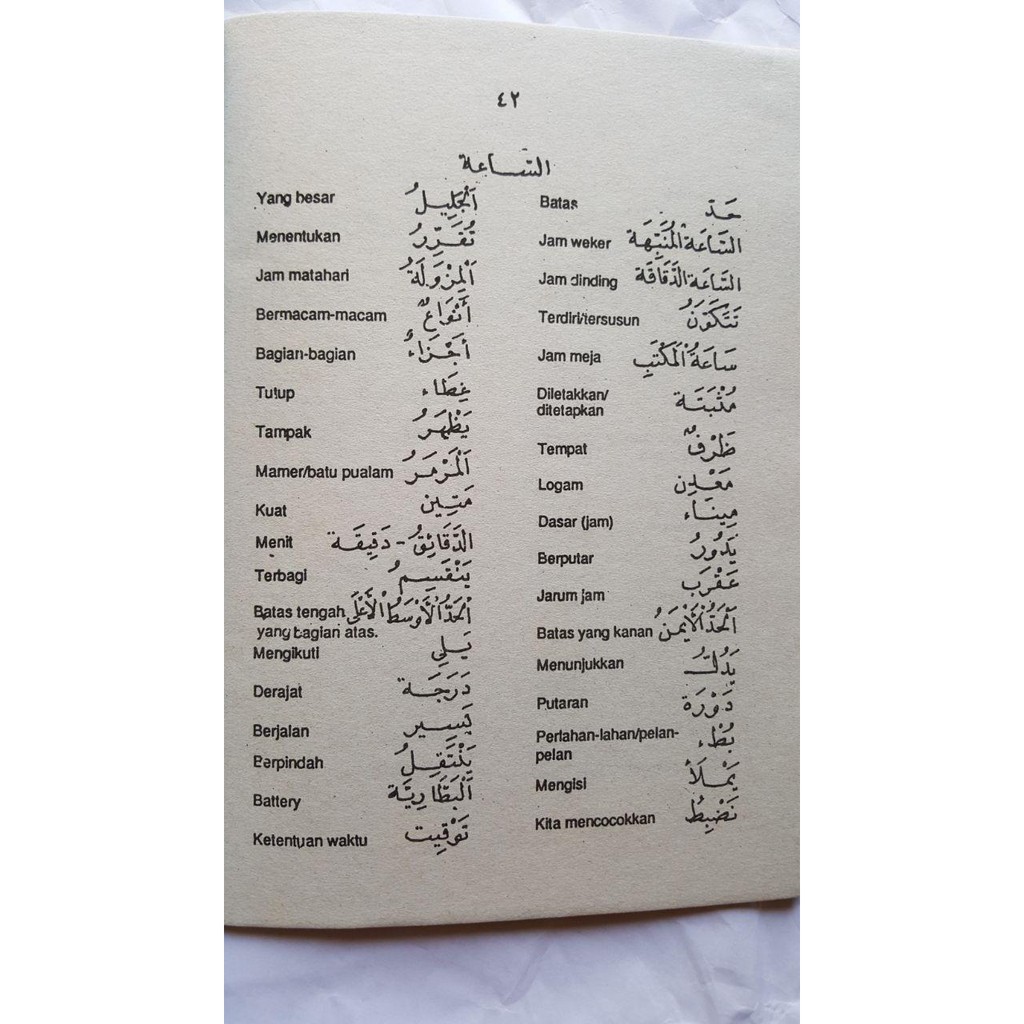 ٤٢
الساعة
Yang besar اَلْجَلِيلُ
Menentukan تُقَرِّرُ
Jam matahari اَلْمِزْوَلَةُ
Bermacam-macam أَنْوَاعٌ
Bagian-bagian أَجْزَاءٌ
Tutup غِطَاء
Tampak يَظْهَرُ
Mamer/batu pualam اَلْمَرْمَرُ
Kuat مَتِين
Menit الدَّقَائِقُ - دَقِيقَة
Terbagi يَنْقَسِمُ
Batas tengah اَلْحَدُّ الْأَوْسَطُ الْأَعْلَى
yang bagian atas.
Mengikuti يَلِي
Derajat دَرَجَة
Berjalan يَسِير
Berpindah يَنْتَقِلُ
Battery اَلْبَطَّارِيَّة
Ketentuan waktu تَوْقِيت
Batas حَدّ
Jam weker السَّاعَة الْمُنَبِّهَة
Jam dinding السَّاعَة الدَّقَّاقَة
Terdiri/tersusun تَتَكَوَّنُ
Jam meja سَاعَةُ الْمَكْتَبِ
Diletakkan/ مُثْبَتَة
ditetapkan
Tempat ظَرْفٌ
Logam مَعْدِن
Dasar (jam) مِينَاء
Berputar يَدُورُ
Jarum jam عَقْرَب
Batas yang kanan اَلْحَدُّ الْأَيْمَنُ
Menunjukkan يَدُلُّ
Putaran دَوْرَة
Perlahan-lahan/pelan- بُطْء
pelan
Mengisi يَمْلَأُ
Kita mencocokkan نَضْبِطُ